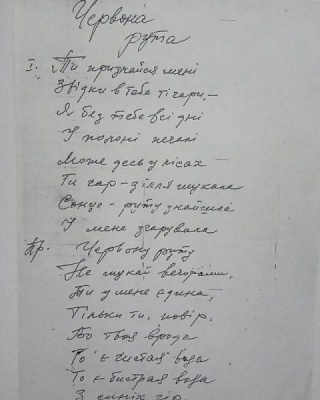 Червона
рута
I. Ти признайся мені
Звідки в тебе ті чари, –
Я без тебе всі дні
У полоні печалі
Може десь у лісах
Ти чар-зілля шукала
Сонце-руту знайшла
У мене зчарувала
Пр. Червону руту
Не шукай вечорами,
Ти у мене єдина,
Тільки ти, повір.
Бо твоя врода
То є чистая вода
То є быстрая вода
З синіх гір.